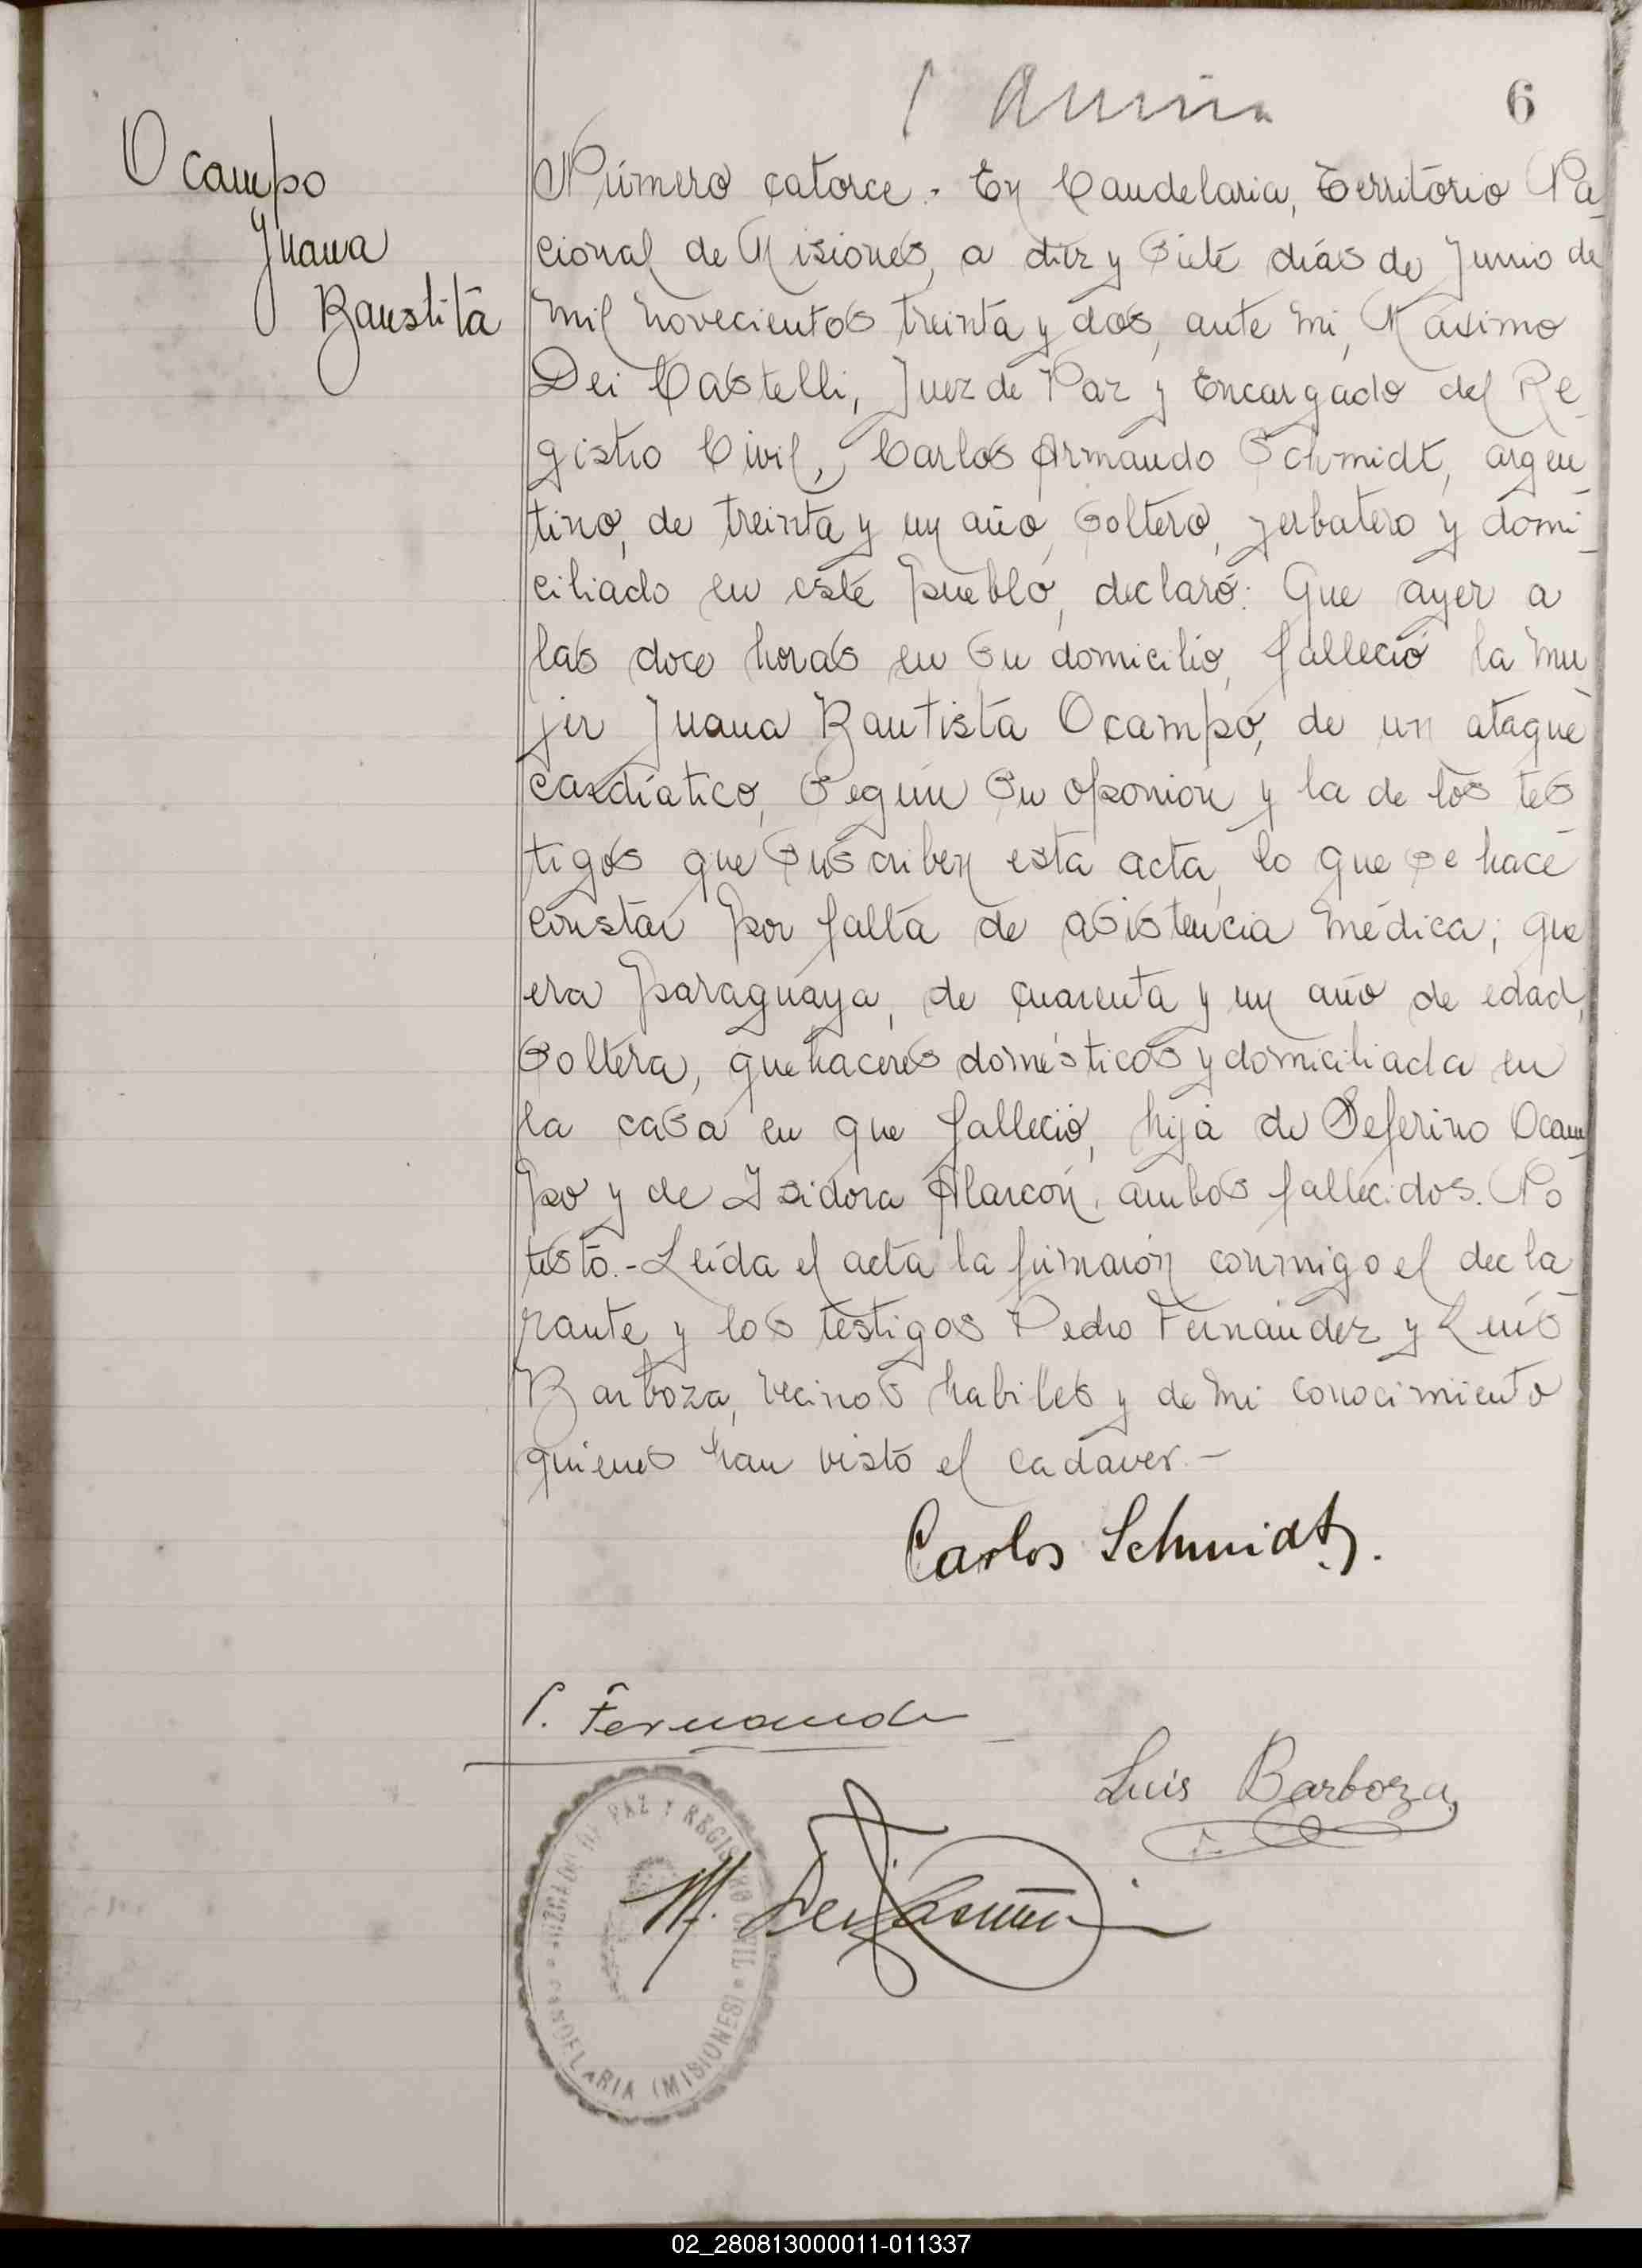 6
Ocampo
Juana
Baustita
Número catorce. En Candelaria, Territorio Na
cional de Misiones, a diez y siete días de Junio de
mil novecientos treinta y dos, ante mi, Máximo
Dei Castelli, Juez de Paz y Encargado del Re
gistro Civil, Carlos Armando Schmidt, argen
tino, de treinta y un año, soltero, yerbatero y domi
ciliado en este pueblo, declaró: Que ayer a
las doce horas en su domicilio, falleció la mu
jer Juana Bautista Ocampo, de un ataque
cardíatico, según su oponion y la de los tes
tigos que suscriben esta acta, lo que se hace
constar por falta de asistencia médica; que
era paraguaya, de cuarenta y un año de edad,
soltera, quehaceres domésticos y domiciliada en
la casa en que falleció, hija de Seferino Ocam
po y de Isidora Alarcón, ambos fallecidos. No
testó.- Leída el acta la firmarón conmigo el decla
rante y los testigos Pedro Fernández y Luís
Barboza, vecinos habiles y de mi conocimiento
quienes han visto el cadaver.-
Carlos Schmidt.
P. Fernande
Luis Barboza
JUZGADO DE PAZ Y REGISTRO CIVIL
CANDELARIA (MISIONES)
M. Dei Castelli
02_280813000011-011337